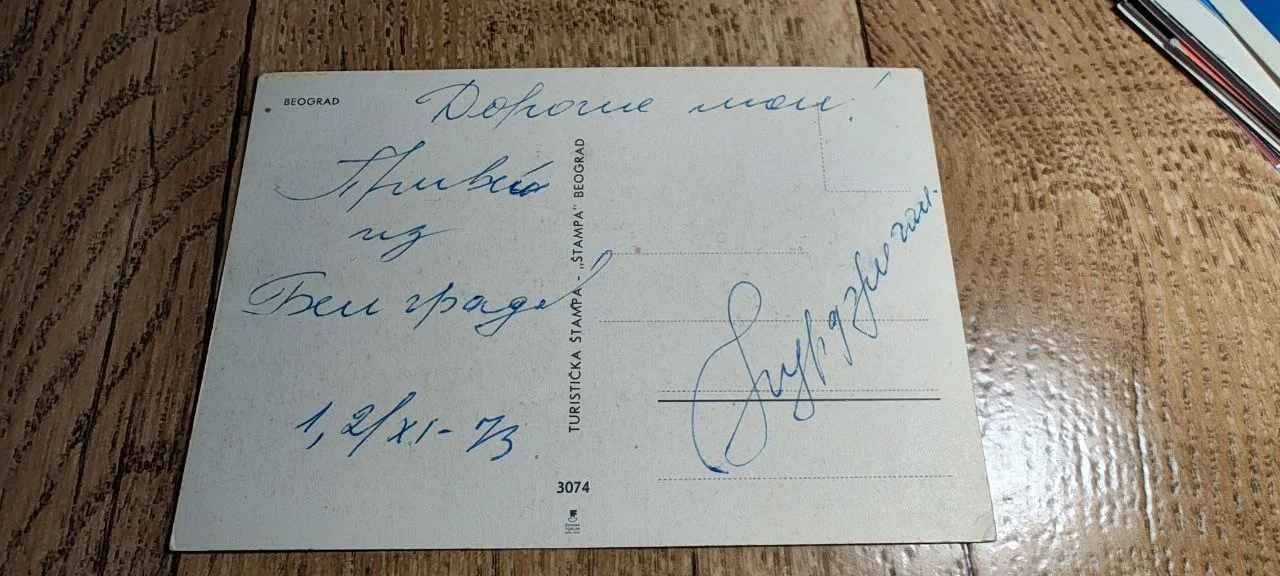 BEOGRAD
Дорогие мои!
Привет
из
Белграда
1, 2/XI-73
TURISTIČKA ŠTAMPA - „ŠTAMPA" BEOGRAD
3074